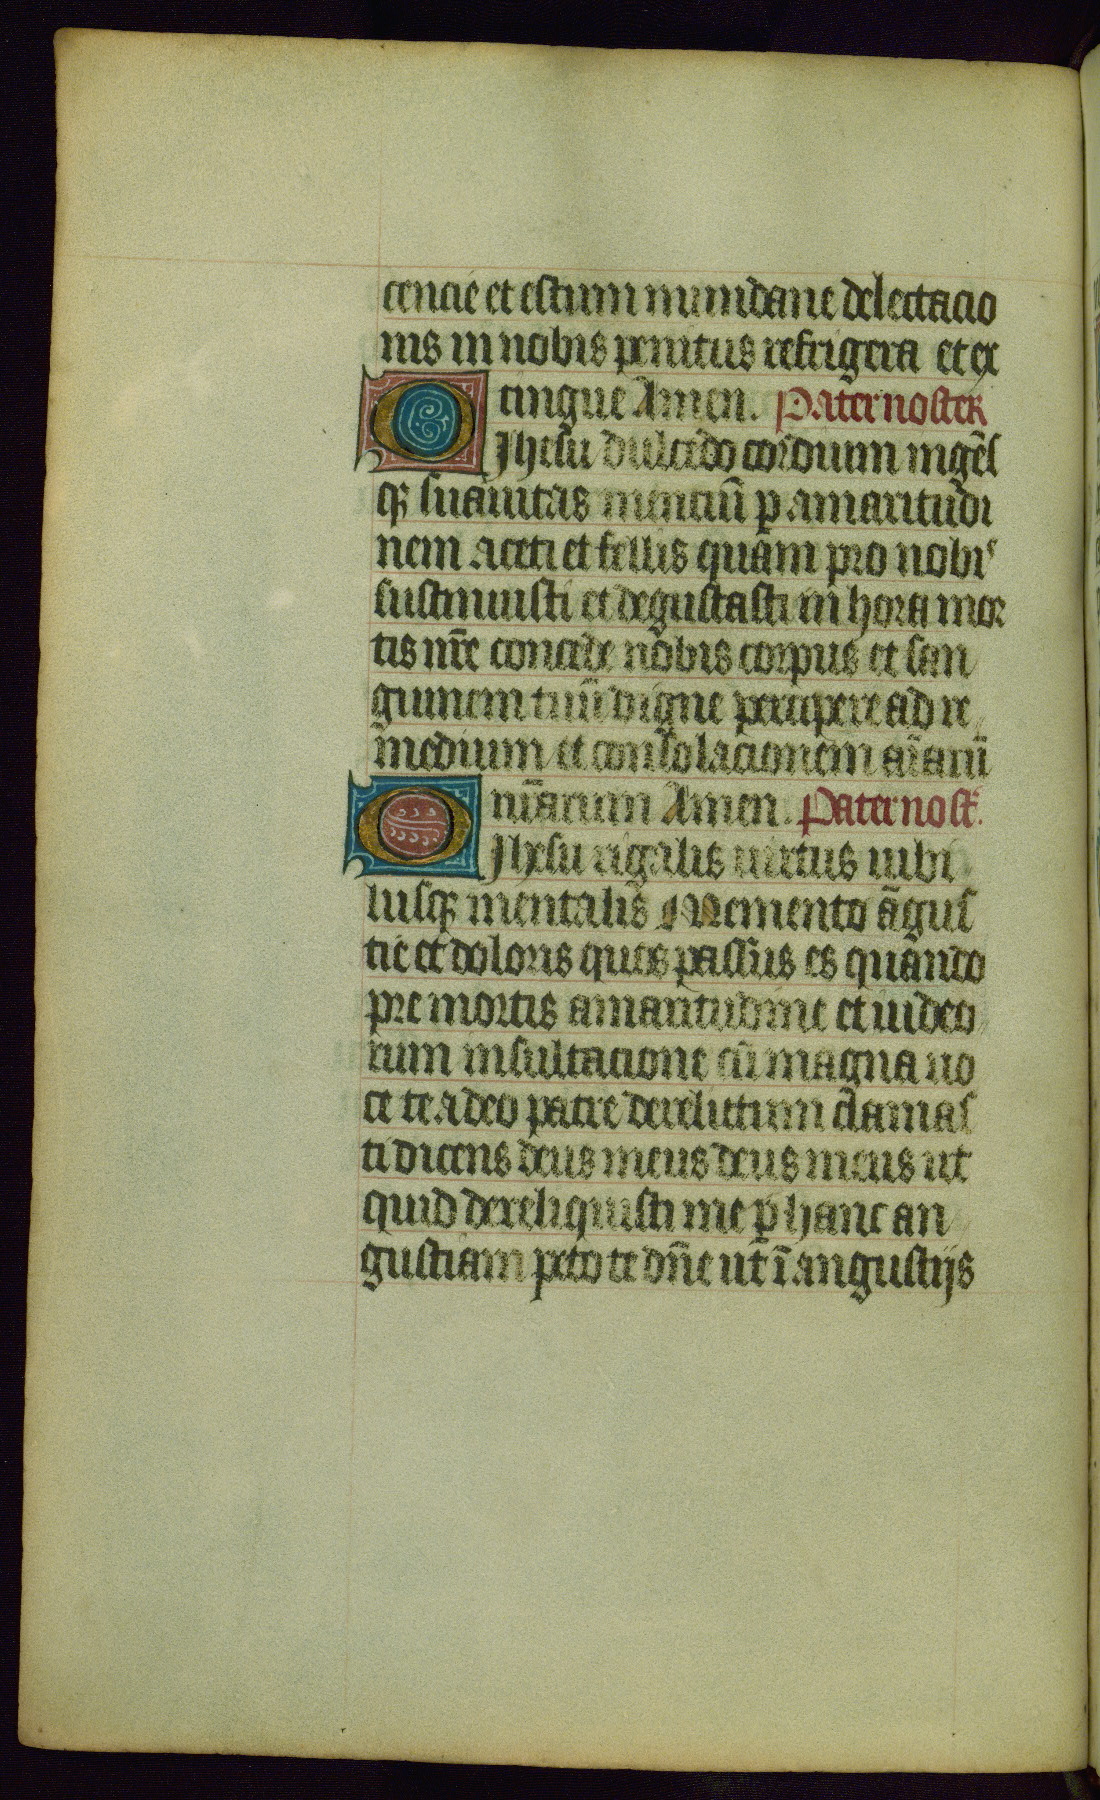 cencie et estum mundane delectacio
nis in nobis penitus refrigera et ex
tingue Amen. Pater noster
O Jhesu dulcedo cordium ingẽs
qꝫ suauitas menciũ ꝑ amaritudi
nem aceti et fellis quam pro nobis
sustinuisti et degustasti in hora mor
tis nr̃e concede nobis corpus et san
guinem tuũ digne percipere ad re
medium et consolacionem aĩarũ
nr̃arum Amen. Pater nost̃.
O Jhesu rigalis uirtus iubi
lusqꝫ mentalis Memento ãgus
tie et doloris ques passus es quando
pre mortis amaritudine et iudeo
rum insultacione cũ magna uo
ce te a deo patre derelictum clamas
ti dicens deus meus deus meus ut
quid dereliquisti me ꝑ hanc an
gustiam peto te dñe ut ĩ angustijs